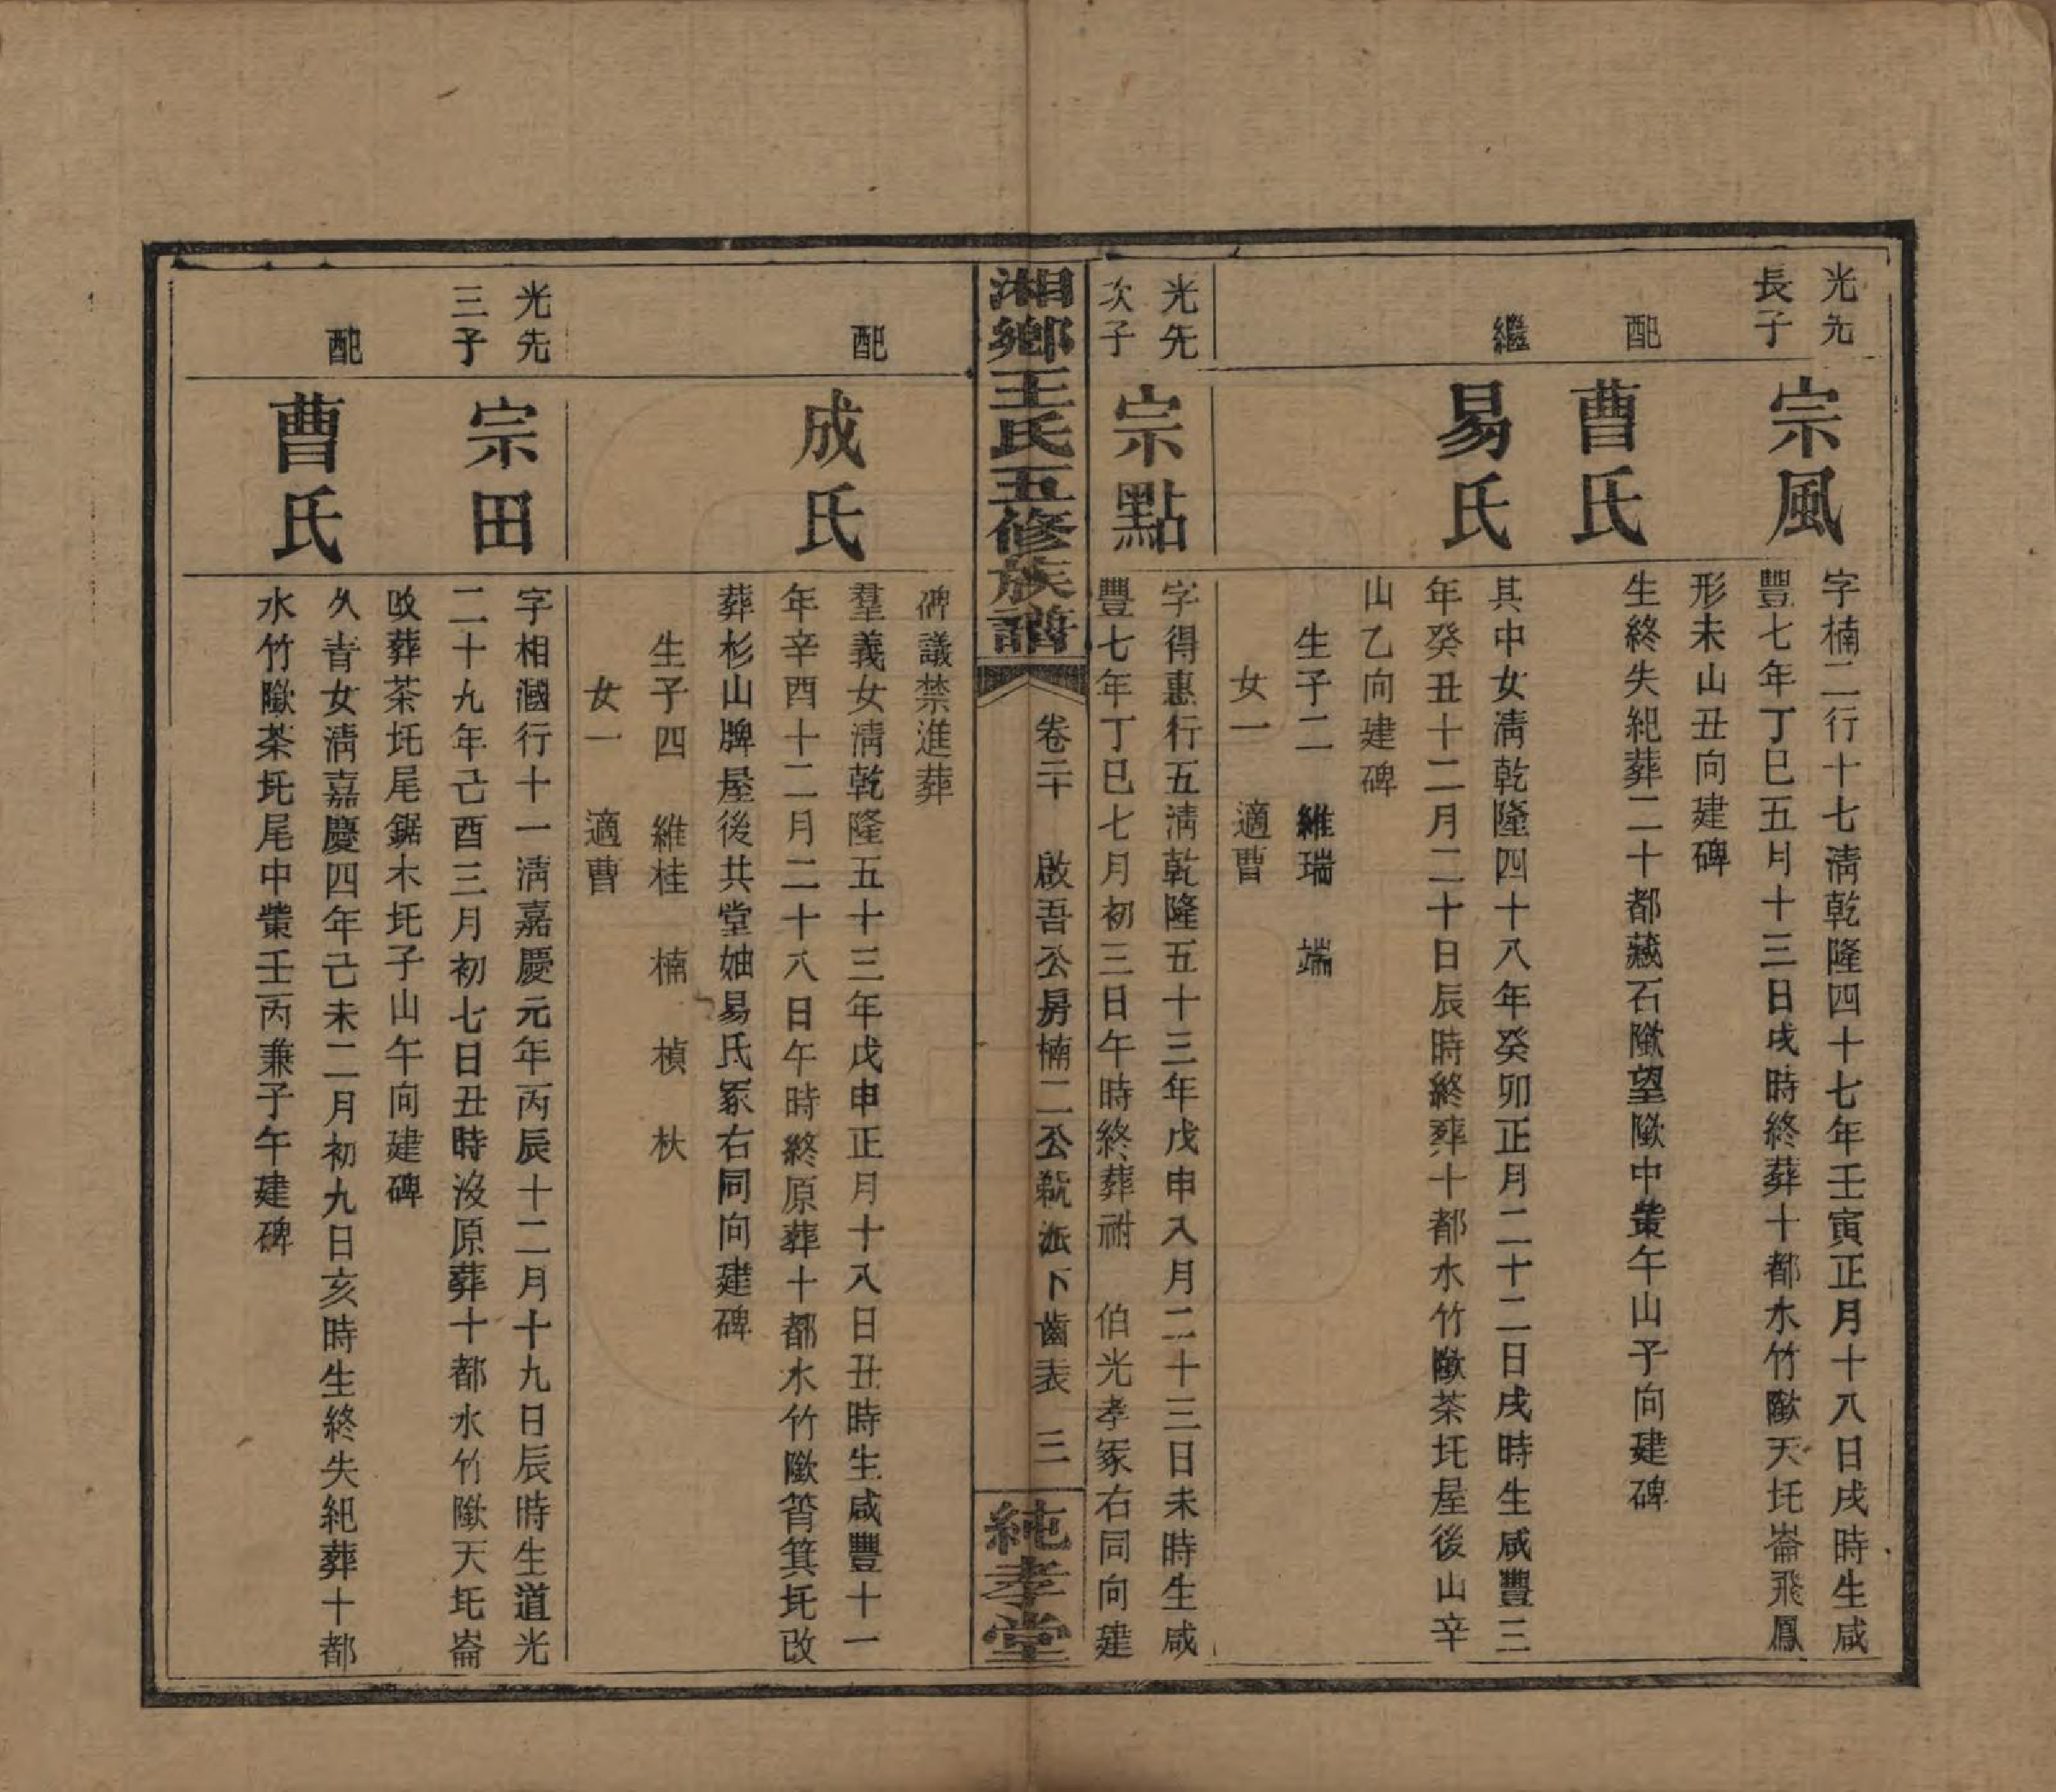 光先
長子
宗風
字楠二行十七淸乾隆四十七年壬寅正月十八日戌時生咸
豐七年丁巳五月十三日戌時終葬十都水竹隞天圫崙飛鳳
形未山丑向建碑
配
曹氏
生終失紀葬二十都藏石隞望隞中塋午山子向建碑
繼
易氏
其中女淸乾隆四十八年癸卯正月二十二日戌時生咸豐三
年癸丑十二月二十日辰時終葬十都水竹隞茶圫屋後山辛
山乙向建碑
生子二 維瑞 端
女一 適曹
光先
次子
宗點
字得惠行五淸乾隆五十三年戊申入月二十三日未時生咸
豐七年丁巳七月初三日午時終葬祔 伯光孝冢右同向建
湘鄉王氏五修族譜
卷二十 啟吾公房楠二公䚹派下齒表 三
純孝堂
碑議禁進葬
配
成氏
羣義女淸乾隆五十三年戊申正月十八日丑時生咸豐十一
年辛酉十二月二十八日午時終原葬十都水竹隞筲箕圫改
葬杉山牌屋後共堂妯易氏冢右同向建碑
生子四 維桂 楠 楨 杕
女一 適曹
光先
三子
宗田
字相漍行十一淸嘉慶元年丙辰十二月十九日辰時生道光
二十九年己酉三月初七日丑時沒原葬十都水竹隞天圫崙
改葬茶圫尾鋸木圫子山午向建碑
配
曹氏
久睿女淸嘉慶四年己未二月初九日亥時生終失紀葬十都
水竹隞茶圫尾中塋壬丙兼子午建碑